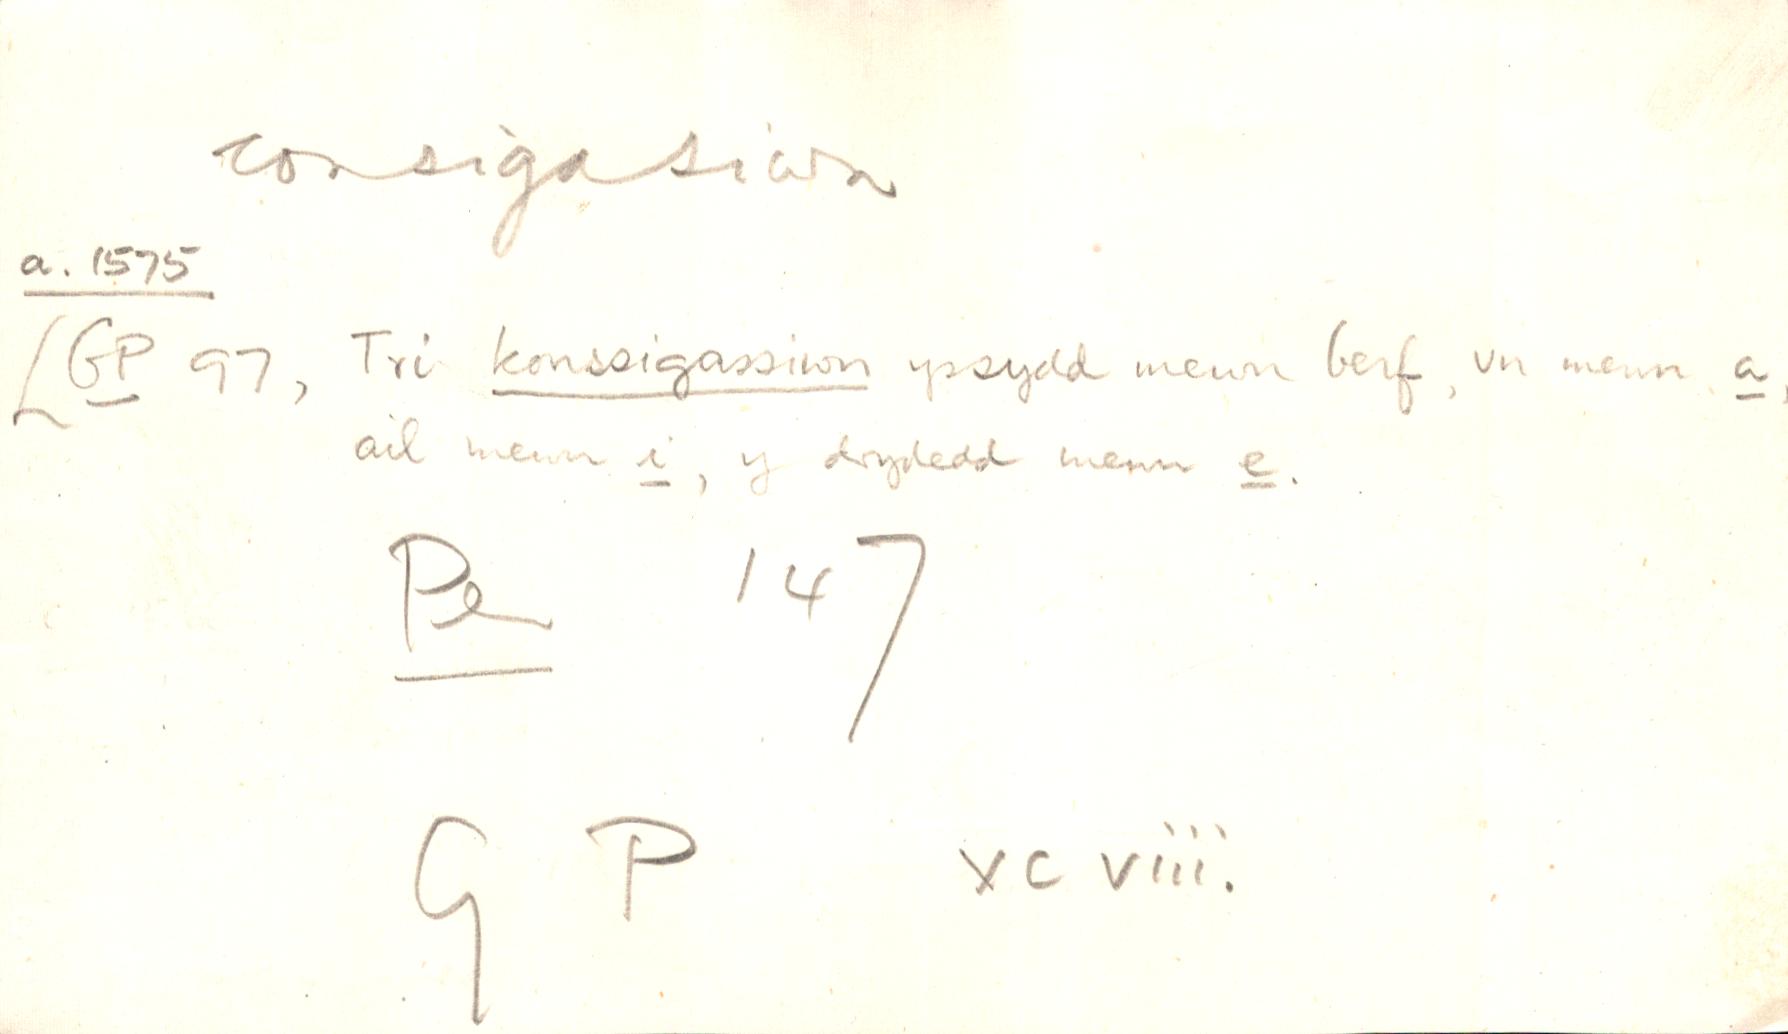 consigasiwn
a. 1575
[GP 97, Tri konssigassiwn yssydd mewn berf, vn mewn a,
ail mewn i, y drydedd mewn e.
Pe 147
G P xcviii.